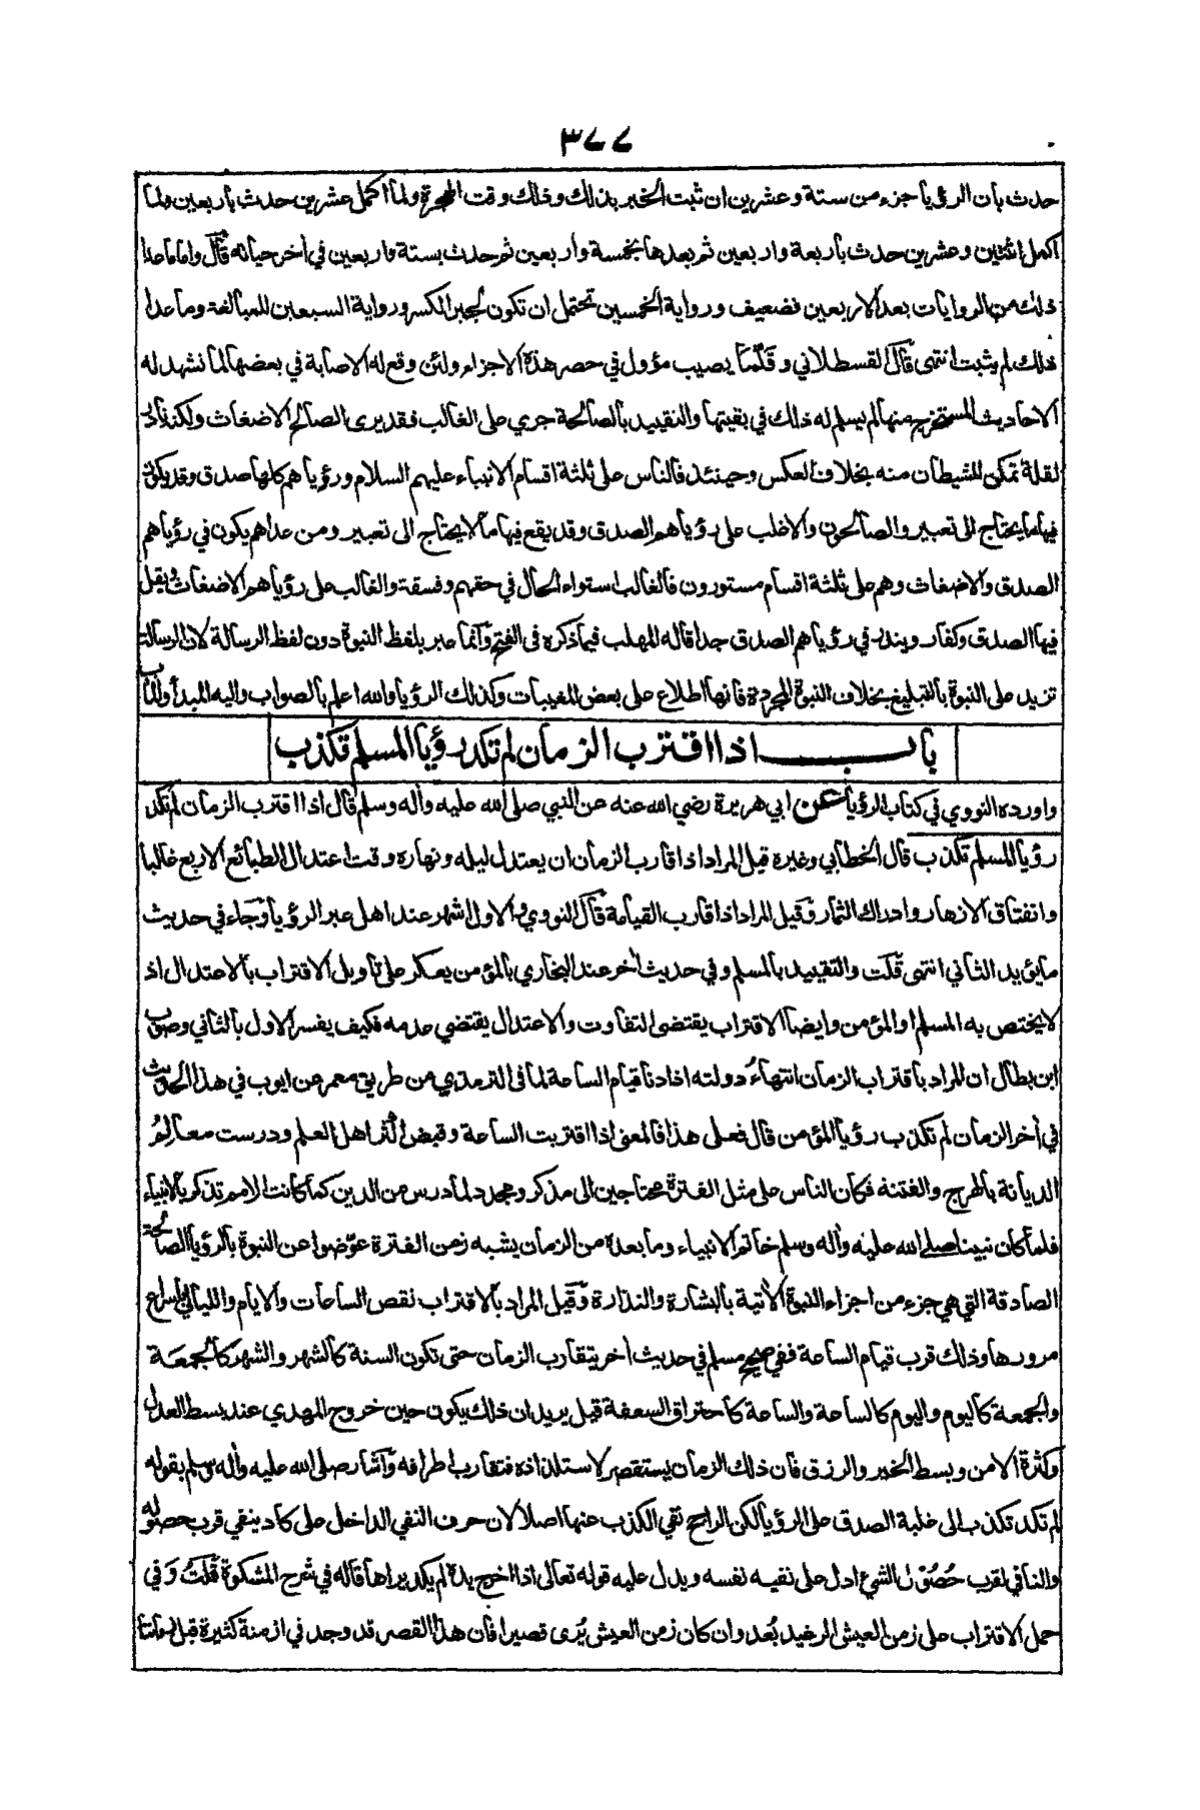 ٣٧٧
حدث بأن الرؤيا جزء من ستة وعشرين ان ثبت الخبر بذلك وذلك وقت الهجرة ولما اكمل عشرين حدث بأربعين ولما
اكمل اثنتين وعشرين حدث بأربعة واربعين ثم بعدها بخمسة وأربعين ثم حدث بستة واربعين في أخر حياته قال واما ما عدا
ذلك من الروايات بعد الاربعين فضعيف ورواية الخمسين تحتمل ان تكون لجبر الكسر ورواية السبعين للمبالغة وما عدا
ذلك لم يثبت انتهى قال القسطلاني وقلّما يصيب مؤول في حصر هذة الاجزاء ولئن وقع له الاصابة في بعضها لما تشهد له
الاحاديث المستخرج منها لم يسلم له ذلك في بقيتها والتقييد بالصالحة جري على الغالب فقد يرى الصالح الاضغاث ولكنه نادر
لقلة تمكن الشيطان منه بخلاف العكس وحينئذ فالناس على ثلثة اقسام الانبياء عليهم السلام ورؤياهم كلها صدق وقد يكون
فيها ما يحتاج الى تعبير والصالحون والاغلب على رؤياهم الصدق وقد يقع فيها ما لا يحتاج الى تعبير ومن عداهم يكون في رؤياهم
الصدق والاضغاث وهم على ثلثة اقسام مستورون فالغالب استواء الحال في حقهم وفسقة والغالب على رؤياهم الاضغاث ويقل
فيها الصدق وكفار ويندر في رؤياهم الصدق جدا قاله المهلب فيما ذكره فى الفتح وانما عبر بلفظ النبوة دون لفظ الرسالة لان الرسالة
تزيد على النبوة بالتبليغ بخلاف النبوة المجردة فانها اطلاع على بعض المغيبات وكذلك الرؤيا والله اعلم بالصواب واليه المبدأ والمآب
باب اذا اقترب الزمان لم تكد رؤيا المسلم تكذب
واورده النووي في كتاب الرؤيا عن ابي هريرة رضي الله عنه عن النبي صلى الله عليه وأله وسلم قال اذا اقترب الزمان لم تكد
رؤيا المسلم تكذب قال الخطابي وغيرة قيل المراد اذا قارب الزمان ان يعتدل ليله ونهاره وقت اعتدال الطبائع الاربع غالبا
وانفتاق الازهار وادراك الثمار وقيل المراد اذا قارب القيامة قال النووي والاول اشهر عند اهل عبر الرؤيا وجاء في حديث
ما يؤيد الثاني انتهى قلت والتقييد بالمسلم وفي حديث أخر عند البخاري بالمؤمن يعكر على تأويل الاقتراب بالاعتدال اذ
لا يختص به المسلم او المؤمن وايضا الاقتراب يقتضى التفاوت والاعتدال يقتضي عدمه فكيف يفسر الاول بالثاني وصوب
ابن بطال ان المراد باقتراب الزمان انتهاءُ دولته اذا دنا قيام الساعة لما فى الترمذي من طريق معمر عن ايوب في هذا الحديث
في أخر الزمان لم تكذب رؤيا المؤمن قال فعلى هذا فالمعنى اذا اقتربت الساعة وقبض اكثر اهل العلم ودرست معالمُ
الديانة بالهرج والفتنه فكان الناس على مثل الفترة محتاجين الى مذكر ومجدد لما درس من الدين كما كانت الامم تذكر بالانبياء
فلما كان نبينا صلى الله عليه وأله وسلم خاتم الانبياء وما بعدة من الزمان يشبه زمن الفترة عوّضوا عن النبوة بالرؤيا الصالحة
الصادقة التي هي جزء من اجزاء النبوة الأتية بالبشارة والنذارة وقيل المراد بالاقتراب نقص الساعات والايام والليالي باسراع
مرورها وذلك قرب قيام الساعة ففي صحيح مسلم في حديث أخر يتقارب الزمان حتى تكون السنة كالشهر والشهر كالجمعة
والجمعة كاليوم واليوم كالساعة والساعة كاحتراق السعفة قيل يريد ان ذلك يكون حين خروج المهدي عند بسط العدل
وكثرة الامن وبسط الخير والرزق فان ذلك الزمان يستقصر لاستلذاذه فتقارب اطرافه واشار صلى الله عليه وأله وسلم بقوله
لم تكد تكذب الى غلبة الصدق على الرؤيا لكن الراجح نفي الكذب عنها اصلا لان حرف النفي الداخل على كاد ينفي قرب حصوله
والنافي لقرب حُصُول الشيء ادل على نفيه نفسه ويدل عليه قوله تعالى اذا اخرج يدة لم يكد يراها قاله في شرح المشكوة قلتُ وَفي
حمل الاقتراب على زمن العيش الرغيد بُعد وان كان زمن العيش يُرى قصيرا فان هذا القصر قد وجد في ازمنة كثيرة قبل